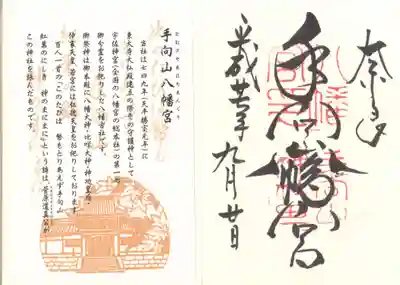 奈良
手向山八幡宮
平成廿七年九月廿日
たむけやまはちまんぐう
手向山八幡宮
当社は七四九(天平勝宝元年)に
東大寺大仏殿建立の際その守護神として
宇佐神宮(全国の八幡宮の総本社)の第一の
御分霊をお祀りした八幡古社です。
御祭神は御本殿に八幡大神・比咩大神・神功皇后・
仲哀天皇、若宮には仁徳天皇をお祀りしております。
百人一首の「このたびは 幣もとりあえず手向山
紅葉のにしき 神のまにまに」という歌は、菅原道真公が
この神社を詠んだものです。